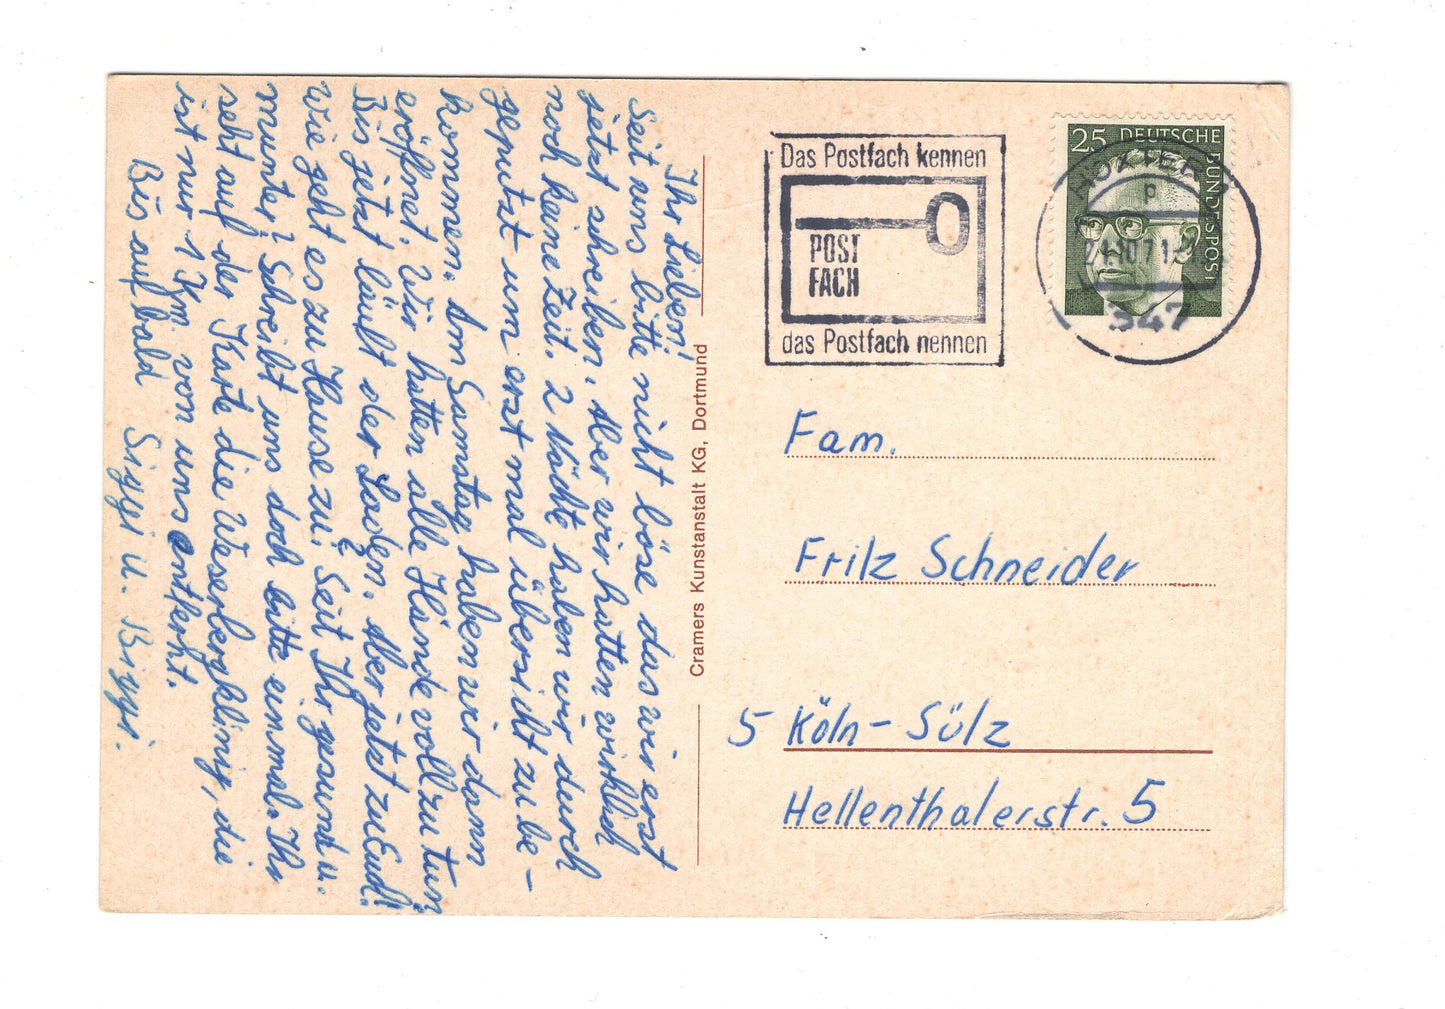 Ihr Lieben!
Seit uns bitte nicht böse das wir erst
jetzt schreiben. Aber wir hatten wirklich
noch keine Zeit. 2 Nächte haben wir durch
geputzt um erst mal übersicht zu be-
kommen. Am Samstag haben wir dann
eröffnet. Wir hatten alle Hände voll zu tun.
Bis jetzt läuft der Laden. Aber jetzt zu Euch!
Wie geht es zu Hause zu? Seit Ihr gesund u.
munter? Schreibt uns doch bitte einmal. Ihr
seht auf der Karte die Weserbergklinik, die
ist nur 1 Km. von uns entfernt.
Bis auf bald
Siggi u. Biggi.
Cramers Kunstanstalt KG, Dortmund
Das Postfach kennen
POST
FACH
das Postfach nennen
25 DEUTSCHE BUNDESPOST
HÖXTER 1
p
21.10.71-1
347
Fam.
Fritz Schneider
5 Köln-Sülz
Hellenthalerstr. 5